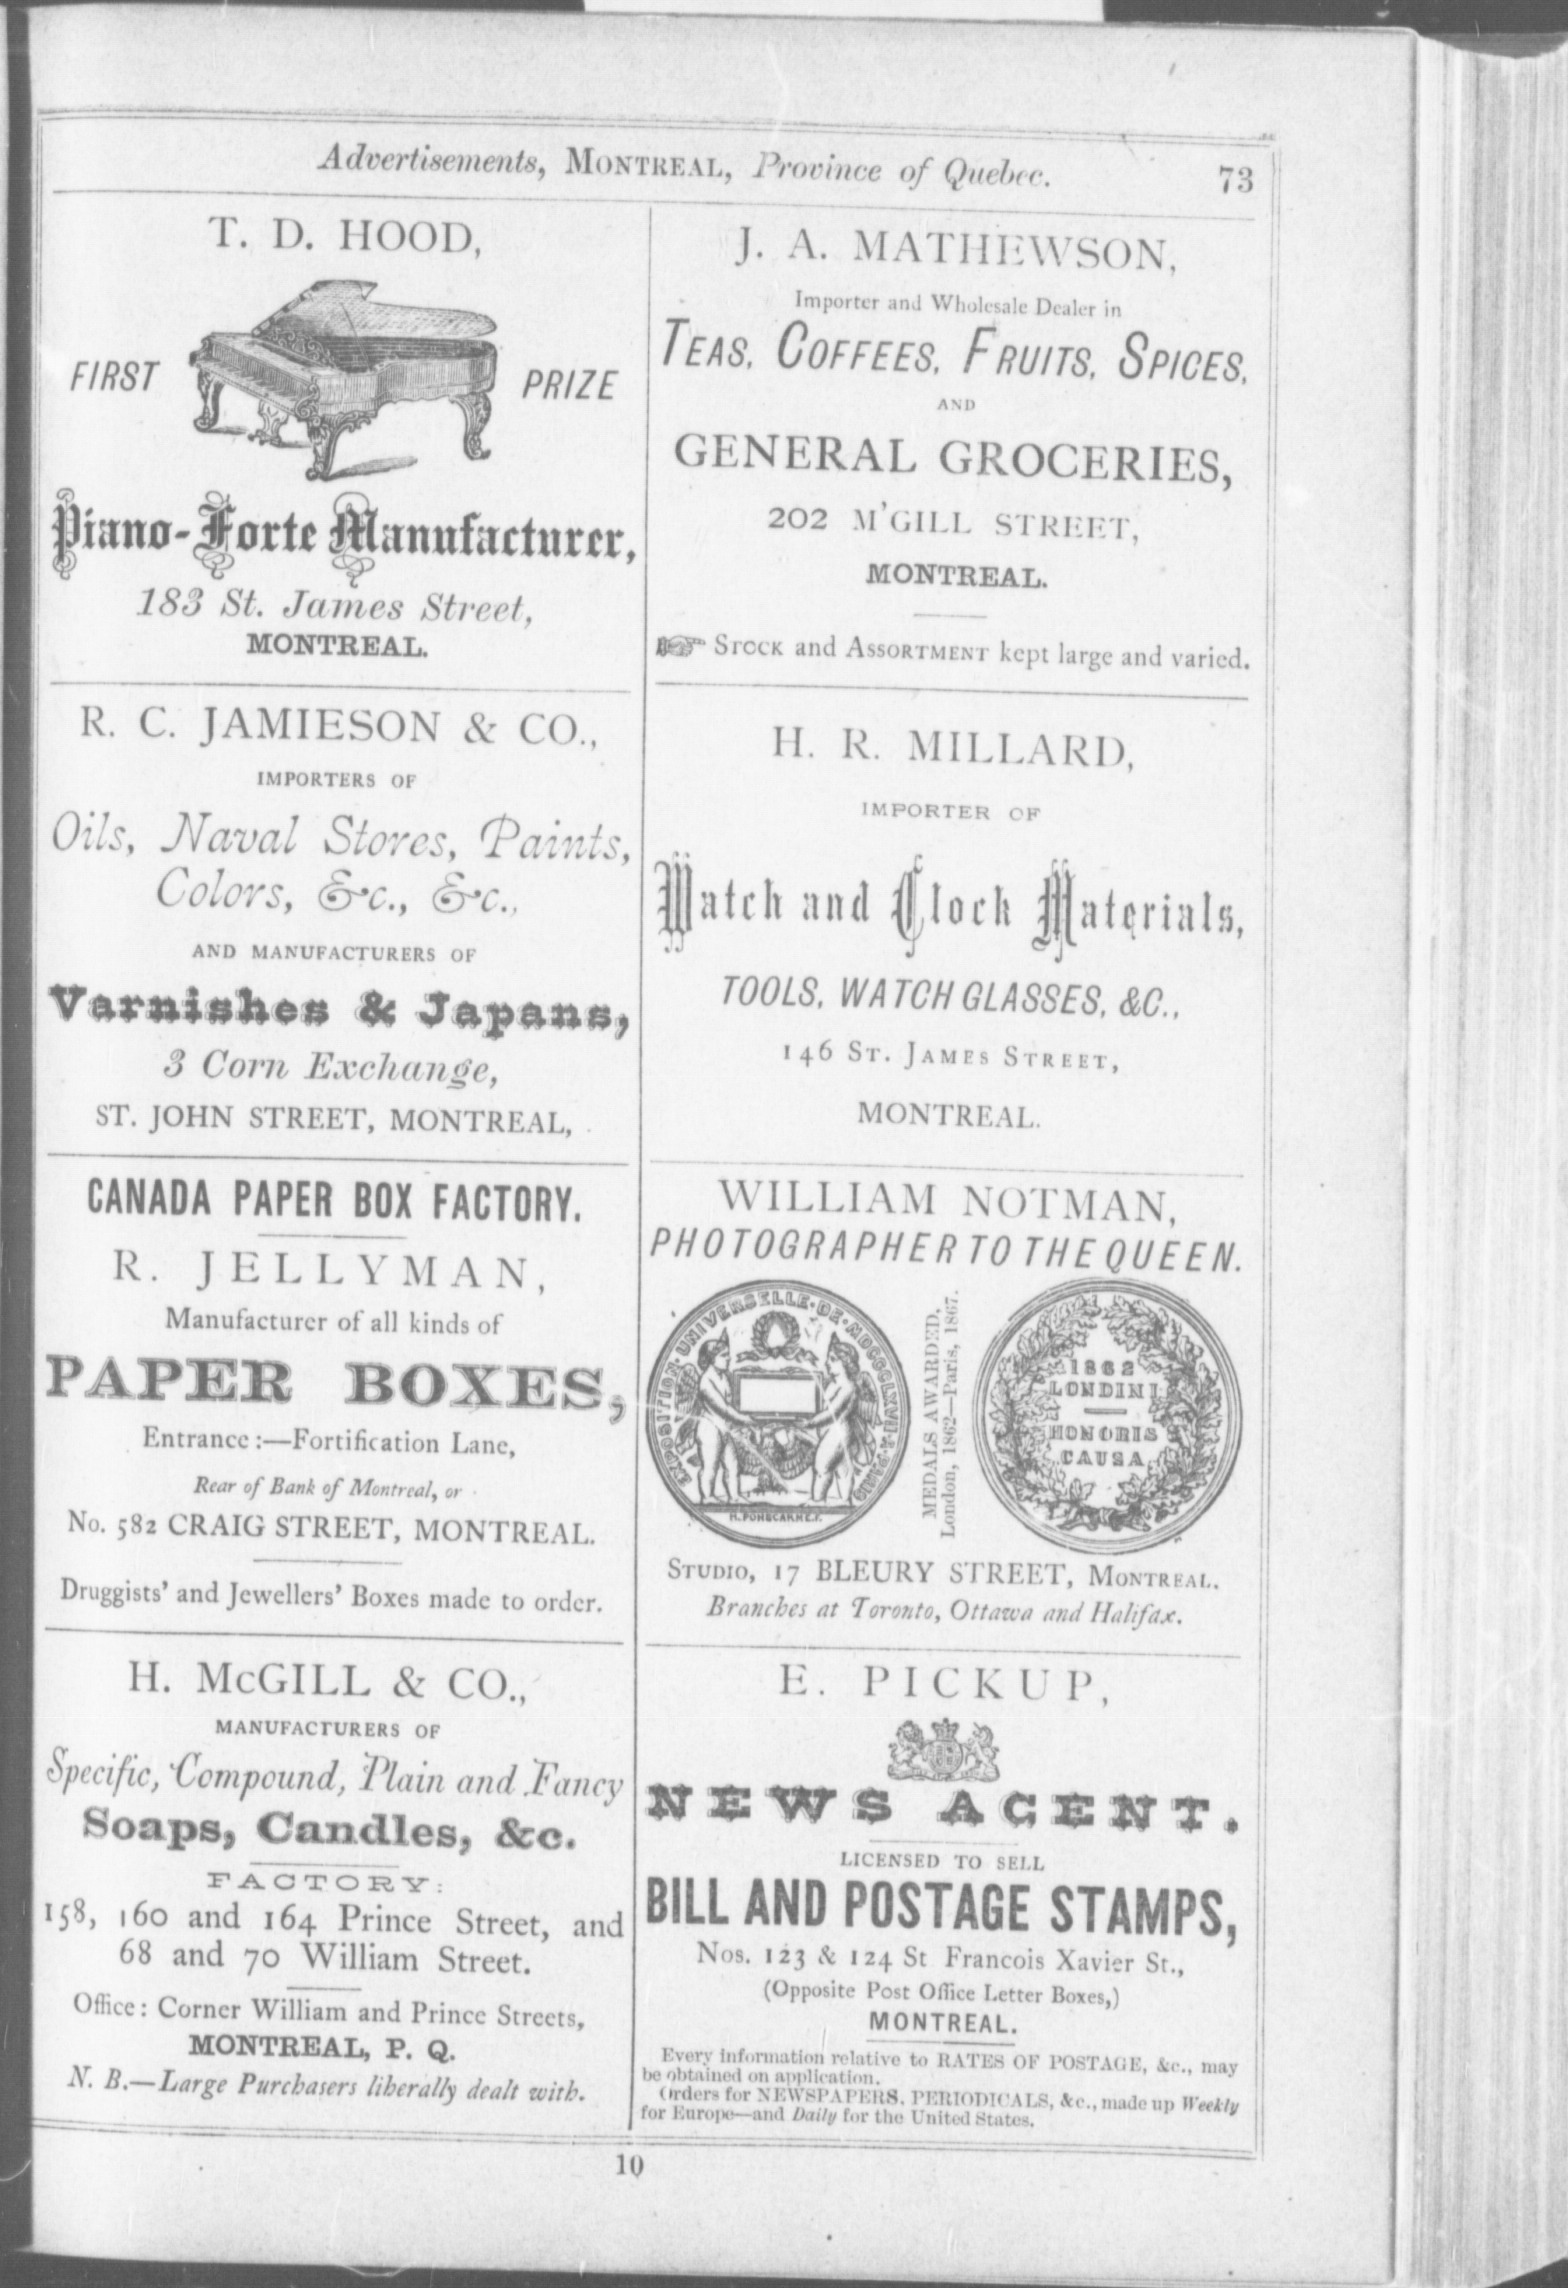 Advertisements, MONTREAL, Province of Quebec. 73
T. D. HOOD,
FIRST PRIZE
Piano-Forte Manufacturer,
183 St. James Street,
MONTREAL.
R. C. JAMIESON & CO.,
IMPORTERS OF
Oils, Naval Stores, Paints,
Colors, &c., &c.,
AND MANUFACTURERS OF
Varnishes & Japans,
3 Corn Exchange,
ST. JOHN STREET, MONTREAL,
CANADA PAPER BOX FACTORY.
R. JELLYMAN,
Manufacturer of all kinds of
PAPER BOXES,
Entrance:—Fortification Lane,
Rear of Bank of Montreal, or
No. 582 CRAIG STREET, MONTREAL.
Druggists' and Jewellers' Boxes made to order.
H. McGILL & CO.,
MANUFACTURERS OF
Specific, Compound, Plain and Fancy
Soaps, Candles, &c.
FACTORY:
158, 160 and 164 Prince Street, and
68 and 70 William Street.
Office: Corner William and Prince Streets,
MONTREAL, P. Q.
N. B.—Large Purchasers liberally dealt with.
J. A. MATHEWSON,
Importer and Wholesale Dealer in
TEAS, COFFEES, FRUITS, SPICES,
AND
GENERAL GROCERIES,
202 M'GILL STREET,
MONTREAL.
☞ STOCK and ASSORTMENT kept large and varied.
H. R. MILLARD,
IMPORTER OF
Watch and Clock Materials,
TOOLS, WATCH GLASSES, &C.,
146 ST. JAMES STREET,
MONTREAL.
WILLIAM NOTMAN,
PHOTOGRAPHER TO THE QUEEN.
EXPOSITION·UNIVERSELLE·DE·MDCCCLXVII·A·PARIS
H. PONSCARME.F.
MEDALS AWARDED,
London, 1862—Paris, 1867.
1862
LONDINI
HONORIS
CAUSA
STUDIO, 17 BLEURY STREET, MONTREAL.
Branches at Toronto, Ottawa and Halifax.
E. PICKUP,
NEWS AGENT.
LICENSED TO SELL
BILL AND POSTAGE STAMPS,
Nos. 123 & 124 St Francois Xavier St.,
(Opposite Post Office Letter Boxes,)
MONTREAL.
Every information relative to RATES OF POSTAGE, &c., may
be obtained on application.
Orders for NEWSPAPERS, PERIODICALS, &c., made up Weekly
for Europe—and Daily for the United States.
10